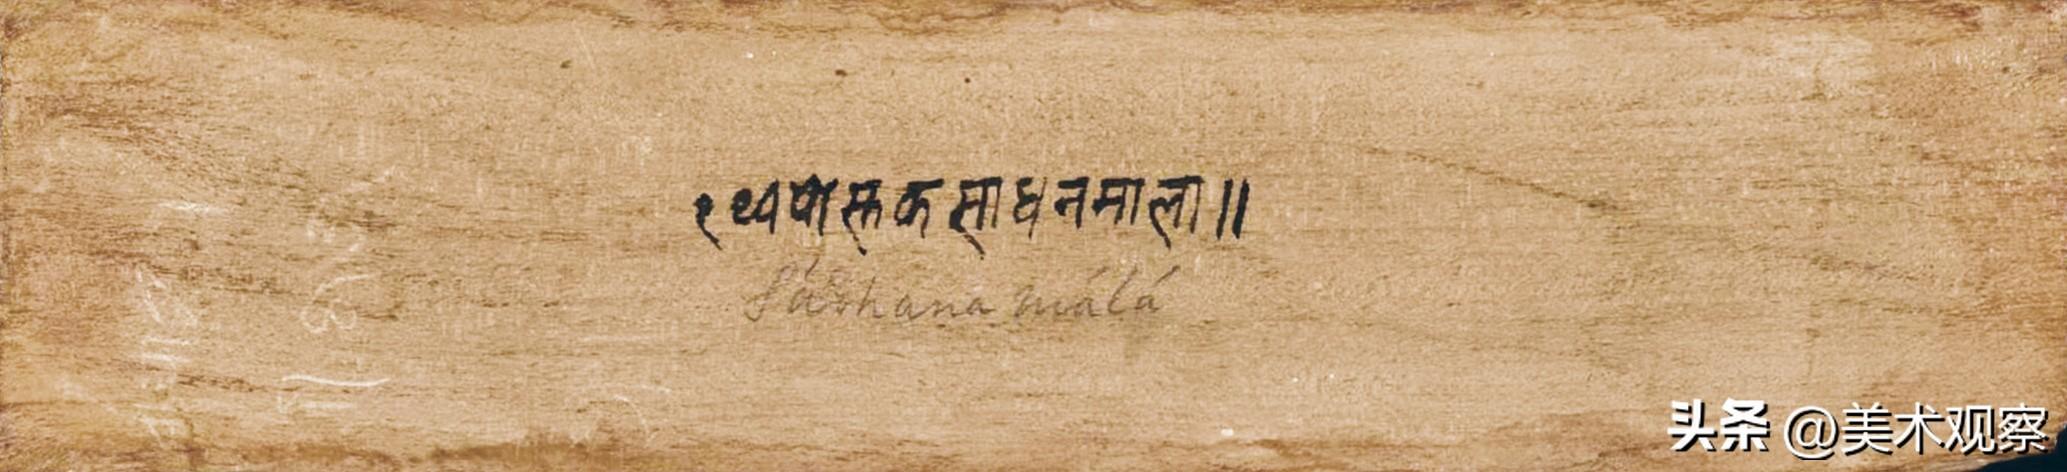 १ थ्व पुस्तक साधनमाला ॥
Sádhana málá
头条 @美术观察